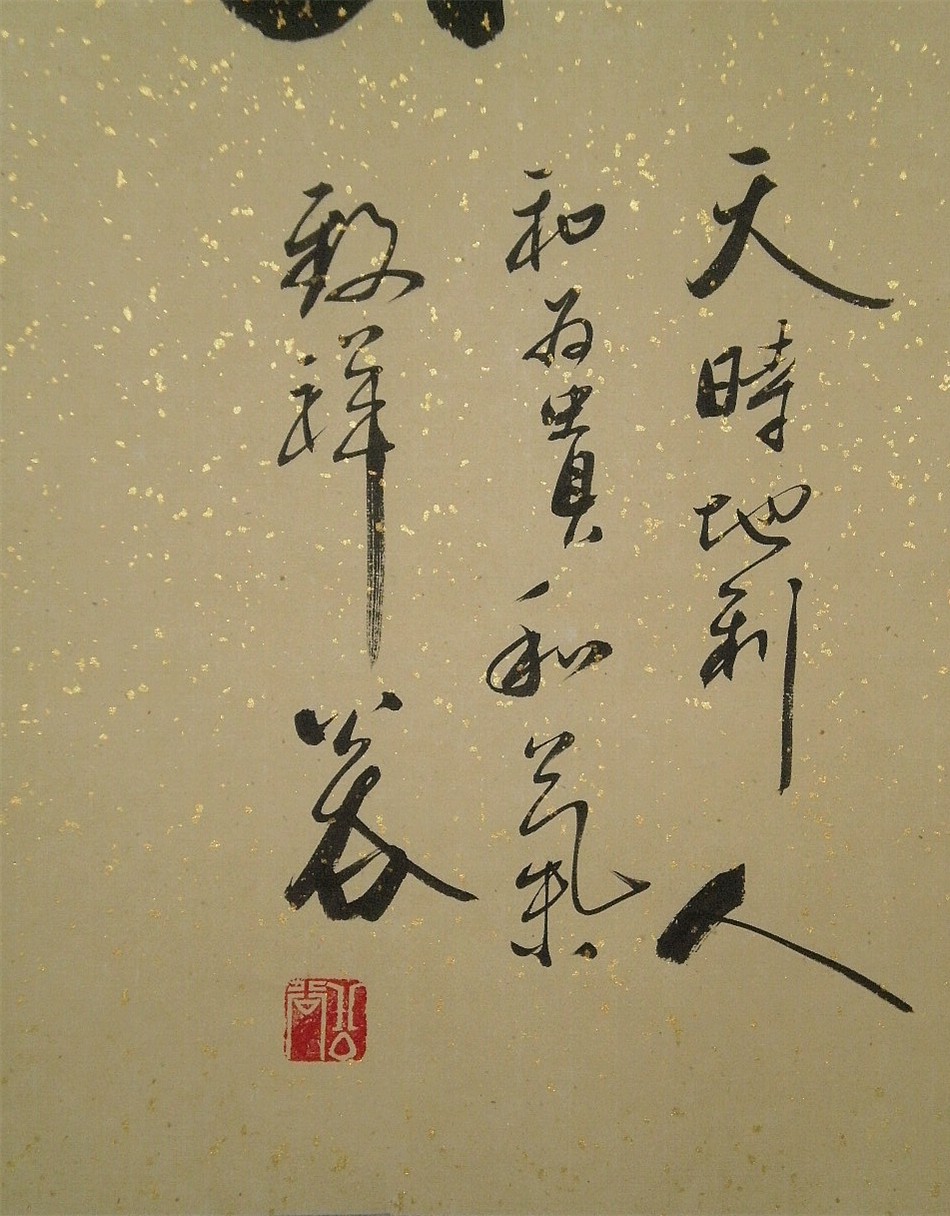 天時地利人
和為貴和氣
致祥